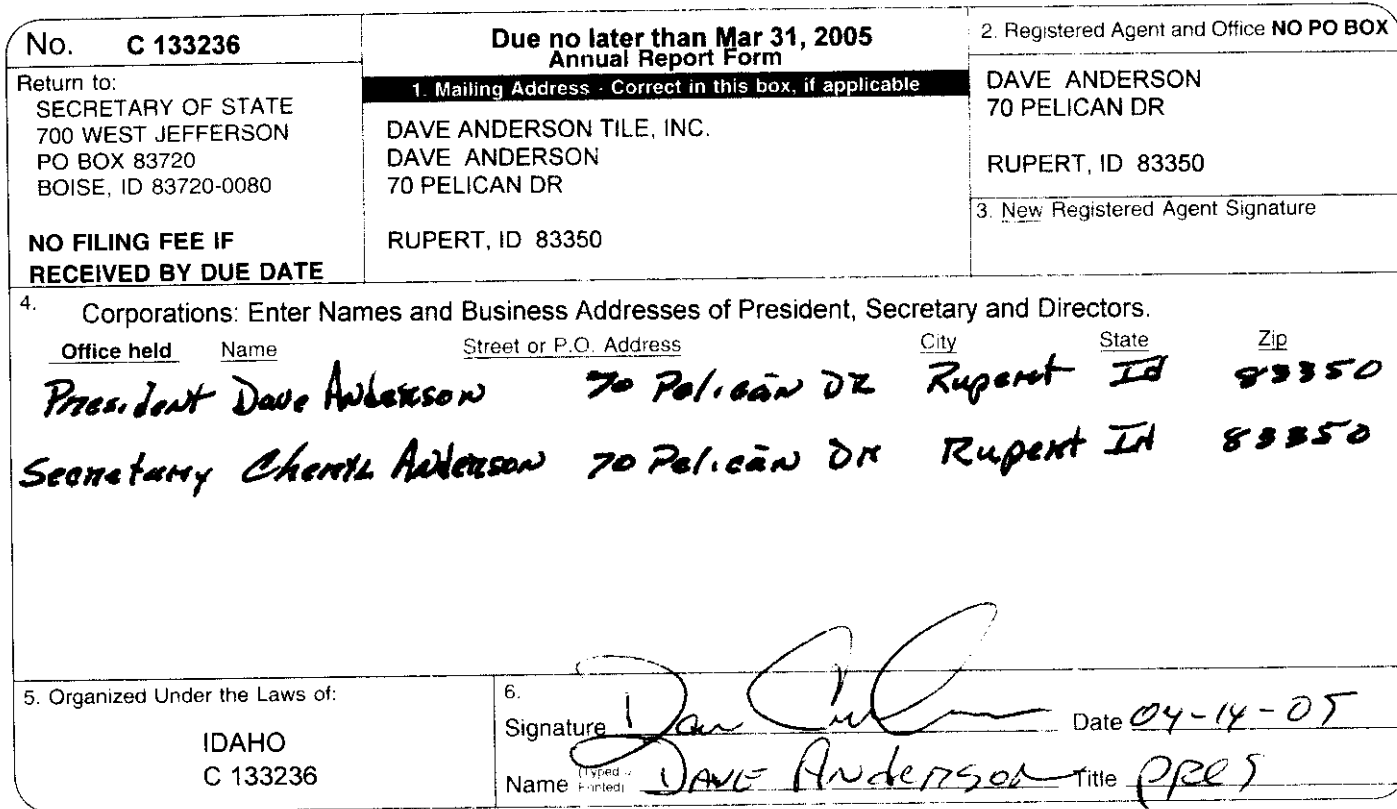 No. C 133236
Return to:
SECRETARY OF STATE
700 WEST JEFFERSON
PO BOX 83720
BOISE, ID 83720-0080
NO FILING FEE IF
RECEIVED BY DUE DATE
Due no later than Mar 31, 2005
Annual Report Form
1. Mailing Address - Correct in this box, if applicable
DAVE ANDERSON TILE, INC.
DAVE ANDERSON
70 PELICAN DR
RUPERT, ID 83350
2. Registered Agent and Office NO PO BOX
DAVE ANDERSON
70 PELICAN DR
RUPERT, ID 83350
3. New Registered Agent Signature
4. Corporations: Enter Names and Business Addresses of President, Secretary and Directors.
Office held Name Street or P.O. Address City State Zip
President Dave Anderson 70 Pelican DR Rupert Id 83350
Secretary Cheryl Anderson 70 Pelican DR Rupert Id 83350
5. Organized Under the Laws of:
IDAHO
C 133236
6.
Signature Date 04-14-05
Name (Typed or Printed) DAVE Anderson Title PRES